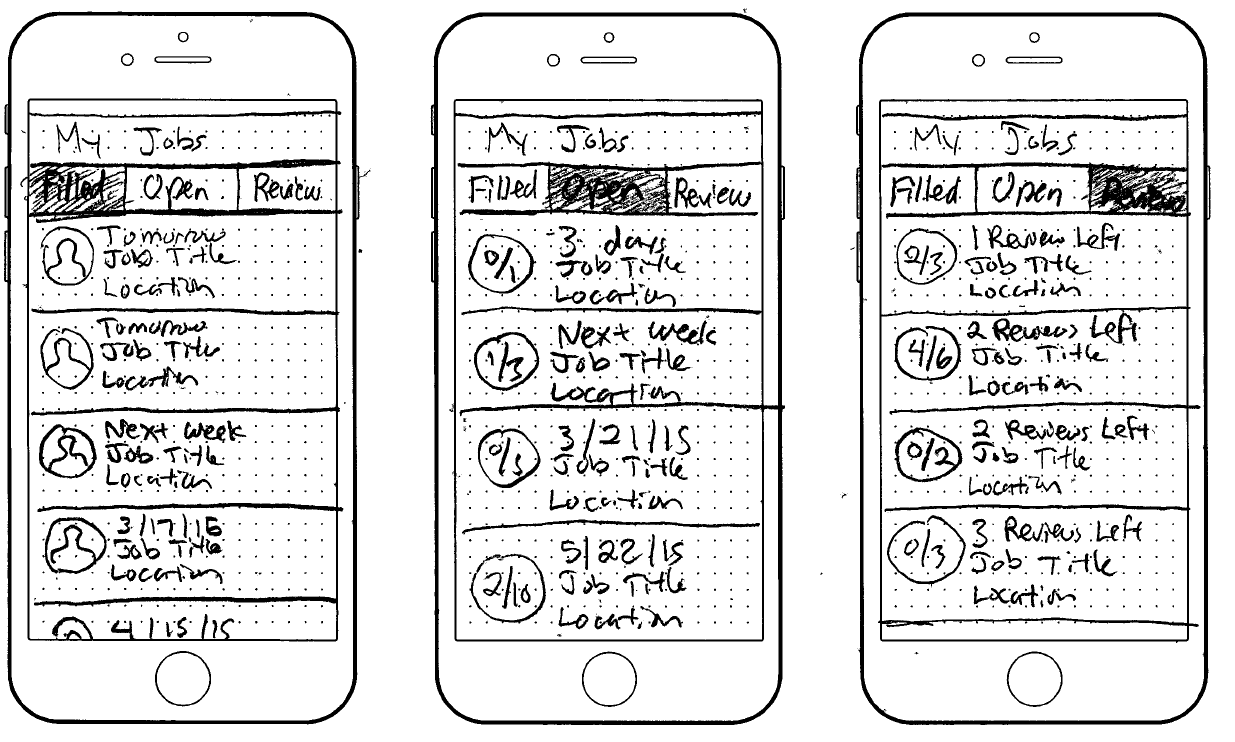 My Jobs
Filled Open Review
Tomorrow
Job Title
Location
Tomorrow
Job Title
Location
Next week
Job Title
Location
3/17/15
Job Title
Location
4/15/15
My Jobs
Filled Open Review
0/1
3 days
Job Title
Location
1/3
Next week
Job Title
Location
0/5
3/21/15
Job Title
Location
2/10
5/22/15
Job Title
Location
My Jobs
Filled Open Review
2/3
1 Review Left
Job Title
Location
4/6
2 Reviews Left
Job Title
Location
0/2
2 Reviews Left
Job Title
Location
0/3
3 Reviews Left
Job Title
Location